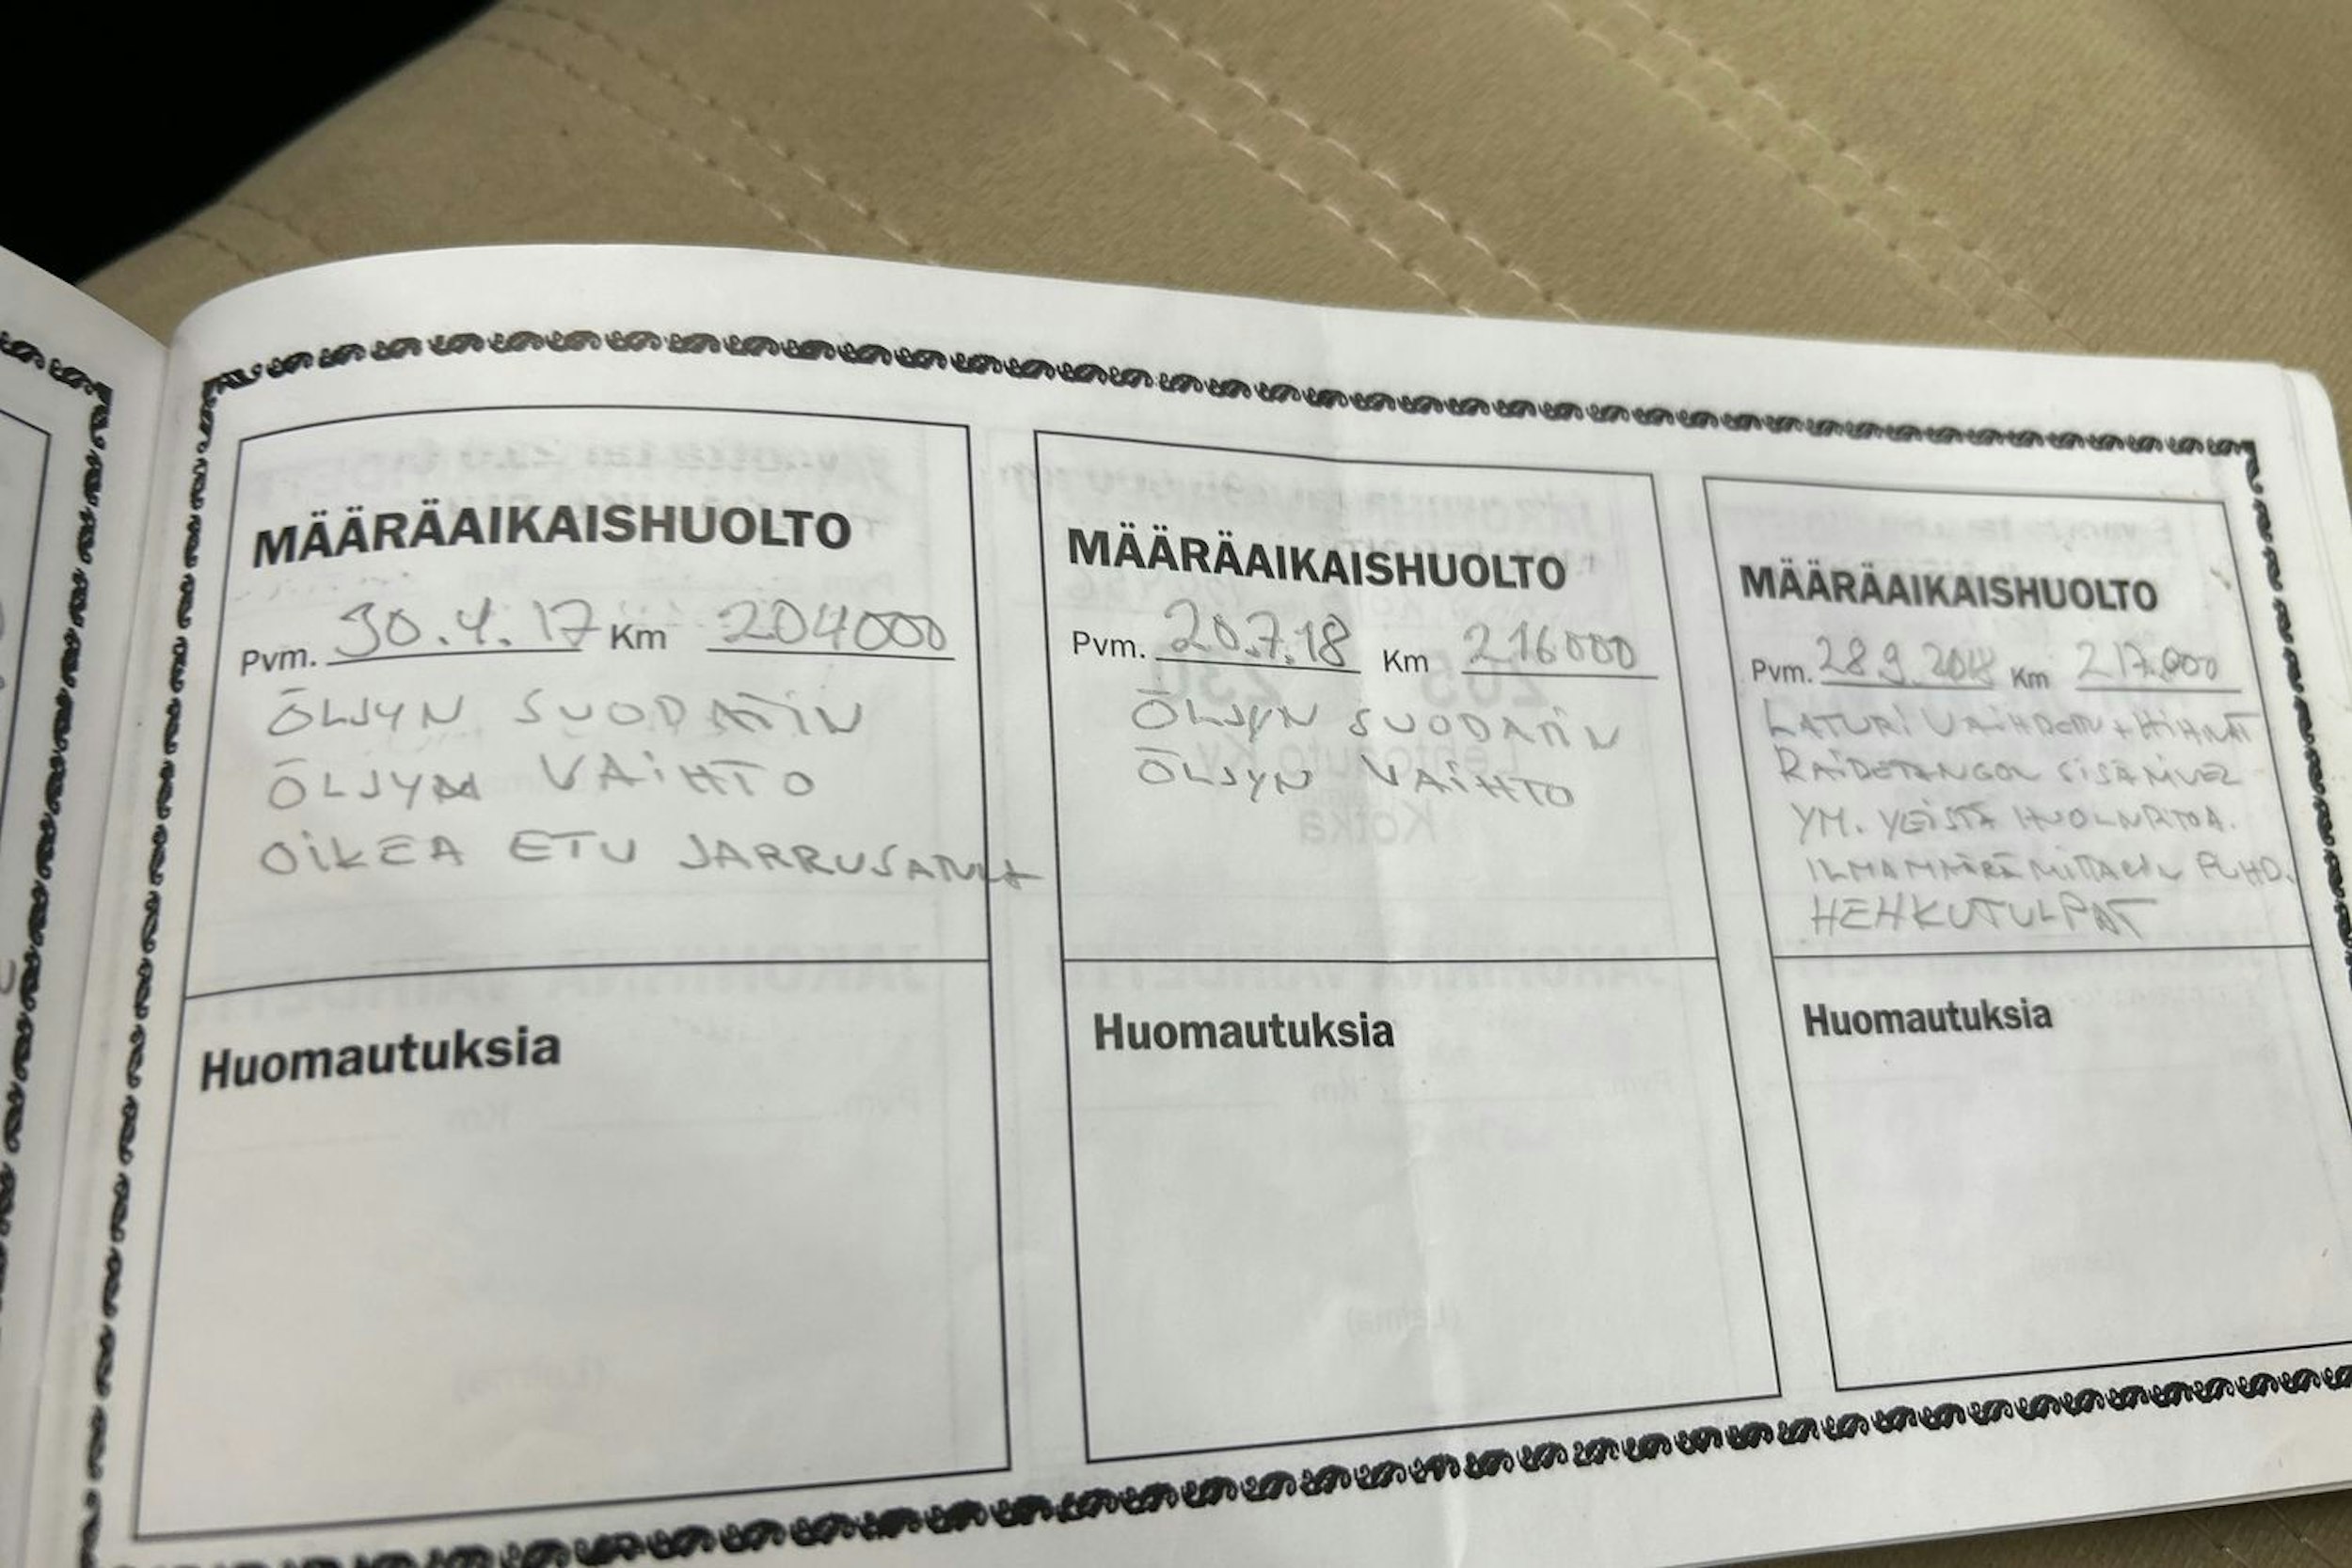 MÄÄRÄAIKAISHUOLTO
Pvm. 30.4.17 Km 204000
ÖLJYN SUODATIN
ÖLJYN VAIHTO
OIKEA ETU JARRUSATULA
Huomautuksia
MÄÄRÄAIKAISHUOLTO
Pvm. 20.7.18 Km 216000
ÖLJYN SUODATIN
ÖLJYN VAIHTO
Huomautuksia
MÄÄRÄAIKAISHUOLTO
Pvm. 28.9.2018 Km 217.000
LATURI VAIHDETTU + HIHNAT
RAIDETANGON SISÄNIVEL
YM. YLEISTÄ HUOLNPITOA.
ILMAMÄÄRÄMITTARIN PUHD.
HEHKUTULPAT
Huomautuksia